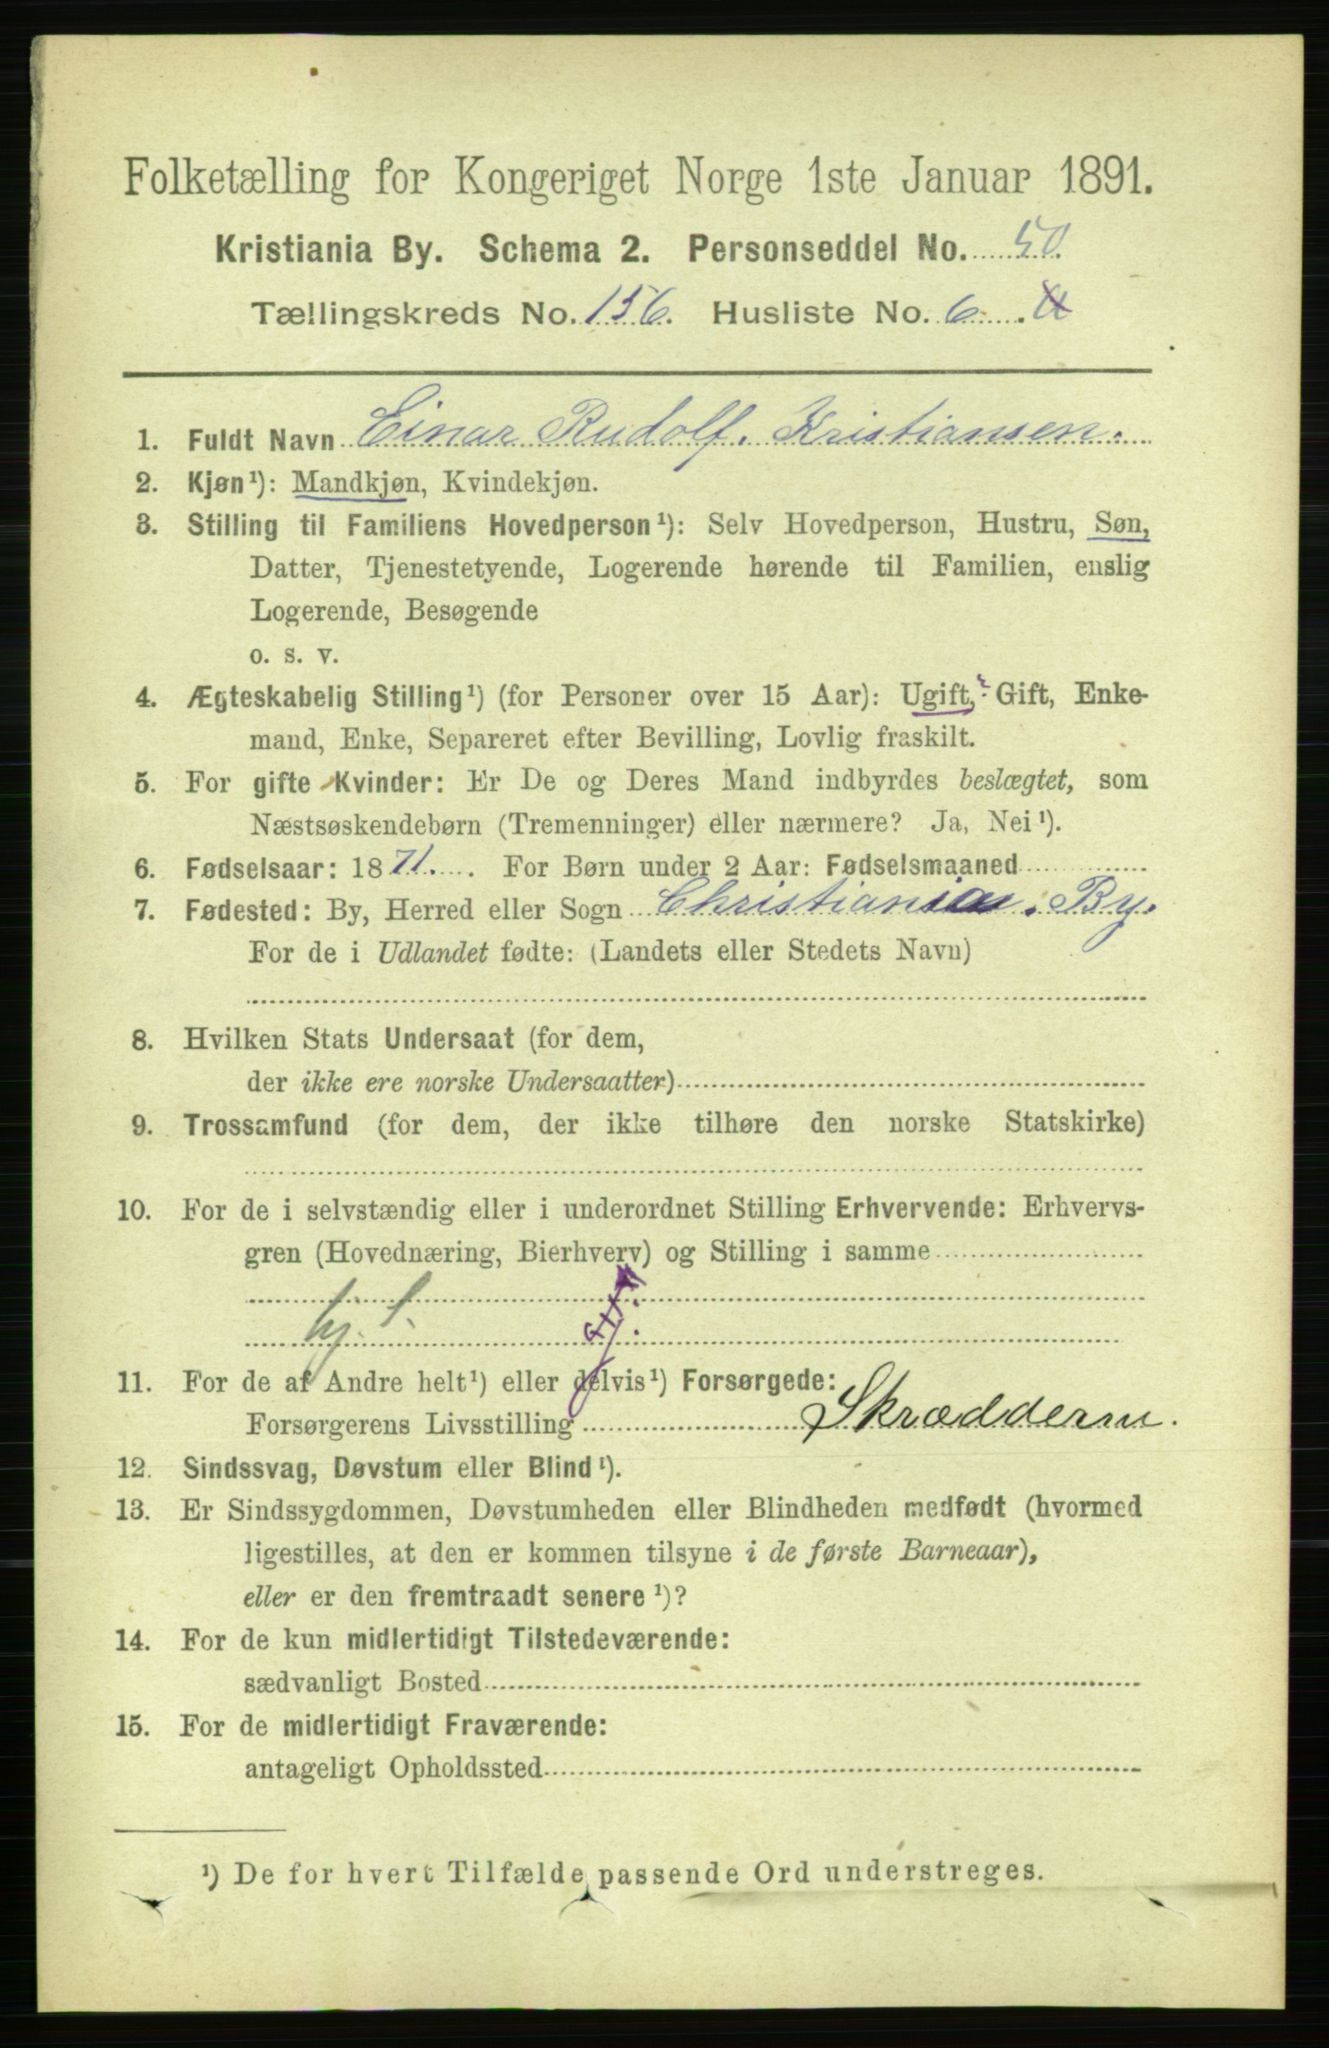 Folketælling for Kongeriget Norge 1ste Januar 1891.
Kristiania By. Schema 2. Personseddel No. 50.
Tællingskreds No. 156. Husliste No. 6.
1. Fuldt Navn Einar Rudolf. Kristiansen.
2. Kjøn¹): Mandkjøn, Kvindekjøn.
3. Stilling til Familiens Hovedperson¹): Selv Hovedperson, Hustru, Søn,
Datter, Tjenestetyende, Logerende hørende til Familien, enslig
Logerende, Besøgende
o. s. v.
4. Ægteskabelig Stilling¹) (for Personer over 15 Aar): Ugift, Gift, Enke-
mand, Enke, Separeret efter Bevilling, Lovlig fraskilt.
5. For gifte Kvinder: Er De og Deres Mand indbyrdes beslægtet, som
Næstsøskendebørn (Tremenninger) eller nærmere? Ja, Nei¹).
6. Fødselsaar: 1871. For Børn under 2 Aar: Fødselsmaaned
7. Fødested: By, Herred eller Sogn Christiania. By.
For de i Udlandet fødte: (Landets eller Stedets Navn)
8. Hvilken Stats Undersaat (for dem,
der ikke ere norske Undersaatter)
9. Trossamfund (for dem, der ikke tilhøre den norske Statskirke)
10. For de i selvstændig eller i underordnet Stilling Erhvervende: Erhvervs-
gren (Hovednæring, Bierhverv) og Stilling i samme
11. For de af Andre helt¹) eller delvis¹) Forsørgede:
Forsørgerens Livsstilling
12. Sindssvag, Døvstum eller Blind¹).
13. Er Sindssygdommen, Døvstumheden eller Blindheden medfødt (hvormed
ligestilles, at den er kommen tilsyne i de første Barneaar),
eller er den fremtraadt senere¹)?
14. For de kun midlertidigt Tilstedeværende:
sædvanligt Bosted
15. For de midlertidigt Fraværende:
antageligt Opholdssted
¹) De for hvert Tilfælde passende Ord understreges.